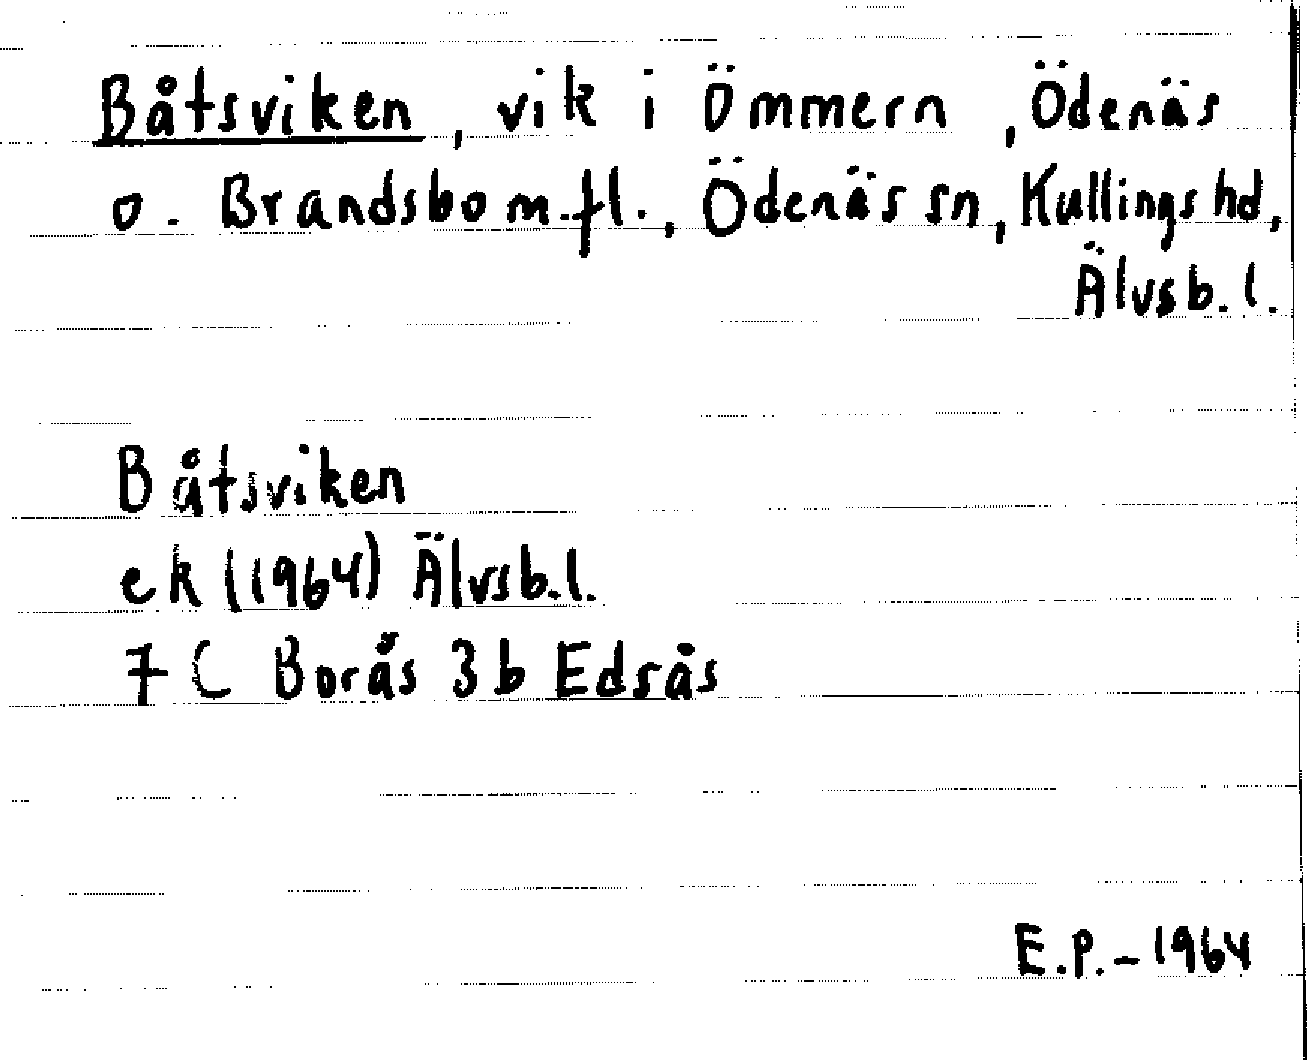 Båtsviken, vik i Ömmern, Ödenäs
o. Brandsbo m.fl., Ödenäs sn, Kullings hd,
Älvsb. l.
Båtsviken
ek (1964) Älvsb. l.
7 C Borås 3 b Edsås
E.P. - 1964